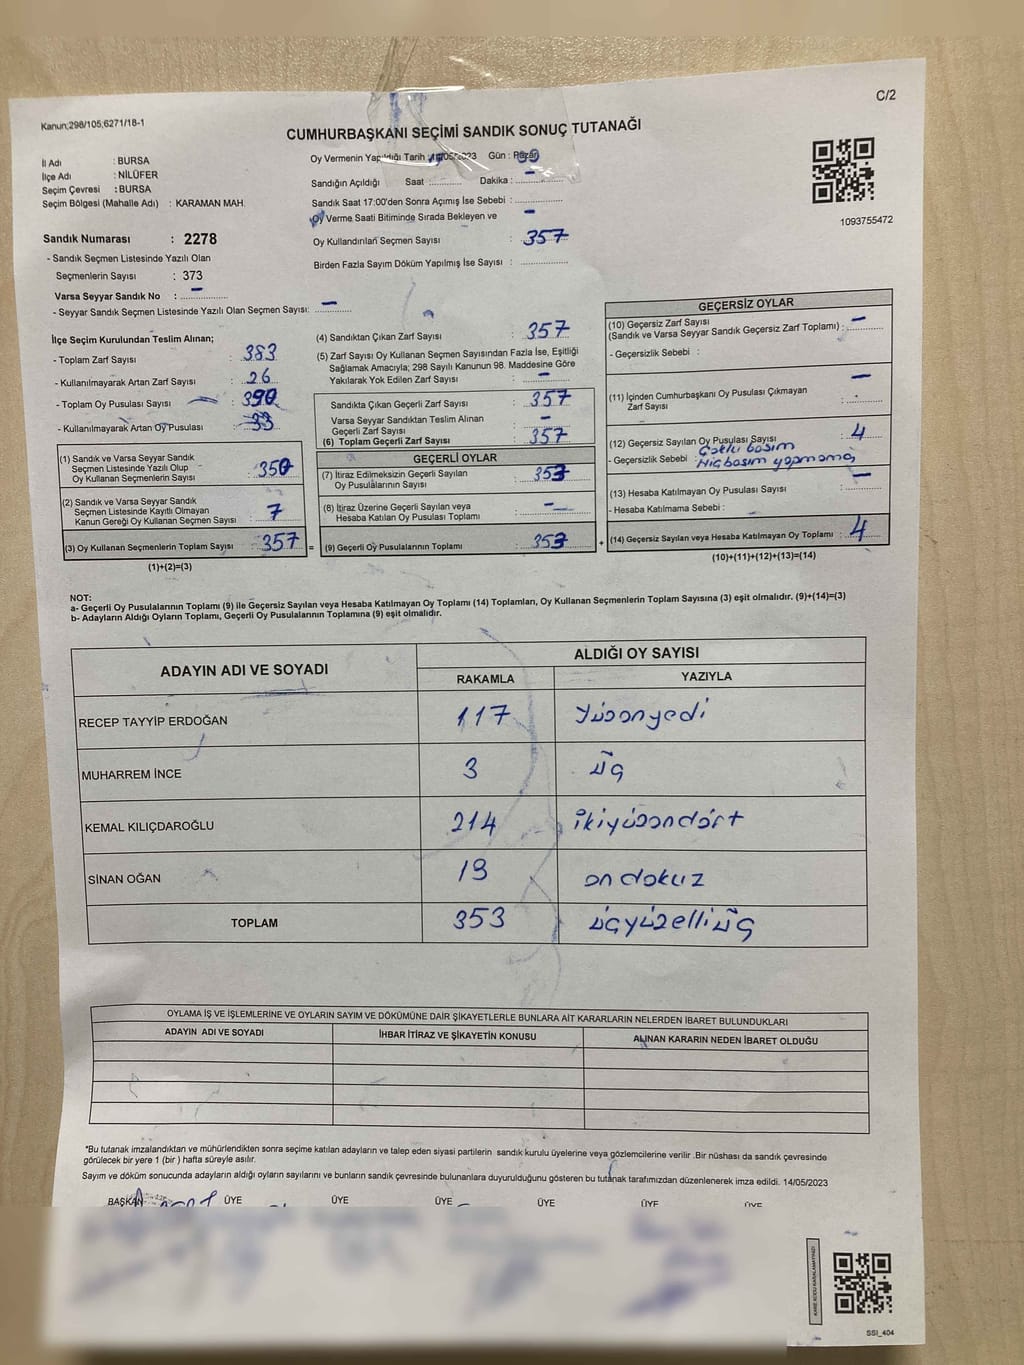 C/2
Kanun;298/105;6271/18-1
CUMHURBAŞKANI SEÇİMİ SANDIK SONUÇ TUTANAĞI
İl Adı : BURSA
İlçe Adı : NİLÜFER
Seçim Çevresi : BURSA
Seçim Bölgesi (Mahalle Adı) : KARAMAN MAH.
Oy Vermenin Yapıldığı Tarih 2023 Gün : Pazar
Sandığın Açıldığı Saat : Dakika : -
Sandık Saat 17:00'den Sonra Açımış İse Sebebi :
Oy Verme Saati Bitiminde Sırada Bekleyen ve -
Oy Kullandırılan Seçmen Sayısı : 357
Birden Fazla Sayım Döküm Yapılmış İse Sayısı :
1093755472
Sandık Numarası : 2278
- Sandık Seçmen Listesinde Yazılı Olan
Seçmenlerin Sayısı : 373
Varsa Seyyar Sandık No : -
- Seyyar Sandık Seçmen Listesinde Yazılı Olan Seçmen Sayısı: -
İlçe Seçim Kurulundan Teslim Alınan;
- Toplam Zarf Sayısı : 383
- Kullanılmayarak Artan Zarf Sayısı : 26
- Toplam Oy Pusulası Sayısı : 390
- Kullanılmayarak Artan Oy Pusulası : 33
(1) Sandık ve Varsa Seyyar Sandık
Seçmen Listesinde Yazılı Olup
Oy Kullanan Seçmenlerin Sayısı : 350
(2) Sandık ve Varsa Seyyar Sandık
Seçmen Listesinde Kayıtlı Olmayan
Kanun Gereği Oy Kullanan Seçmen Sayısı : 7
(3) Oy Kullanan Seçmenlerin Toplam Sayısı : 357 =
(1)+(2)=(3)
(4) Sandıktan Çıkan Zarf Sayısı : 357
(5) Zarf Sayısı Oy Kullanan Seçmen Sayısından Fazla İse, Eşitliği
Sağlamak Amacıyla; 298 Sayılı Kanunun 98. Maddesine Göre
Yakılarak Yok Edilen Zarf Sayısı : -
Sandıkta Çıkan Geçerli Zarf Sayısı : 357
Varsa Seyyar Sandıktan Teslim Alınan
Geçerli Zarf Sayısı : -
(6) Toplam Geçerli Zarf Sayısı : 357
GEÇERLİ OYLAR
(7) İtiraz Edilmeksizin Geçerli Sayılan
Oy Pusulalarının Sayısı : 353
(8) İtiraz Üzerine Geçerli Sayılan veya
Hesaba Katılan Oy Pusulası Toplamı : -
(9) Geçerli Oy Pusulalarının Toplamı : 353 +
GEÇERSİZ OYLAR
(10) Geçersiz Zarf Sayısı
(Sandık ve Varsa Seyyar Sandık Geçersiz Zarf Toplamı) : -
- Geçersizlik Sebebi :
(11) İçinden Cumhurbaşkanı Oy Pusulası Çıkmayan
Zarf Sayısı : -
(12) Geçersiz Sayılan Oy Pusulası Sayısı : 4
- Geçersizlik Sebebi : Çoklu basım
Hiç basım yapmama
(13) Hesaba Katılmayan Oy Pusulası Sayısı : -
- Hesaba Katılmama Sebebi :
(14) Geçersiz Sayılan veya Hesaba Katılmayan Oy Toplamı : 4
(10)+(11)+(12)+(13)=(14)
NOT:
a- Geçerli Oy Pusulalarının Toplamı (9) ile Geçersiz Sayılan veya Hesaba Katılmayan Oy Toplamı (14) Toplamları, Oy Kullanan Seçmenlerin Toplam Sayısına (3) eşit olmalıdır. (9)+(14)=(3)
b- Adayların Aldığı Oyların Toplamı, Geçerli Oy Pusulalarının Toplamına (9) eşit olmalıdır.
ADAYIN ADI VE SOYADI ALDIĞI OY SAYISI
RAKAMLA YAZIYLA
RECEP TAYYİP ERDOĞAN 117 Yüzonyedi
MUHARREM İNCE 3 üç
KEMAL KILIÇDAROĞLU 214 ikiyüzondört
SİNAN OĞAN 19 on dokuz
TOPLAM 353 üçyüzelliüç
OYLAMA İŞ VE İŞLEMLERİNE VE OYLARIN SAYIM VE DÖKÜMÜNE DAİR ŞİKAYETLERLE BUNLARA AİT KARARLARIN NELERDEN İBARET BULUNDUKLARI
ADAYIN ADI VE SOYADI İHBAR İTİRAZ VE ŞİKAYETİN KONUSU ALINAN KARARIN NEDEN İBARET OLDUĞU
*Bu tutanak imzalandıktan ve mühürlendikten sonra seçime katılan adayların ve talep eden siyasi partilerin sandık kurulu üyelerine veya gözlemcilerine verilir .Bir nüshası da sandık çevresinde
görülecek bir yere 1 (bir ) hafta süreyle asılır.
Sayım ve döküm sonucunda adayların aldığı oyların sayılarını ve bunların sandık çevresinde bulunanlara duyurulduğunu gösteren bu tutanak tarafımızdan düzenlenerek imza edildi. 14/05/2023
BAŞKAN ÜYE ÜYE ÜYE ÜYE ÜYE ÜYE
KARE KODU KARALAMAYINIZ!
SSI_404